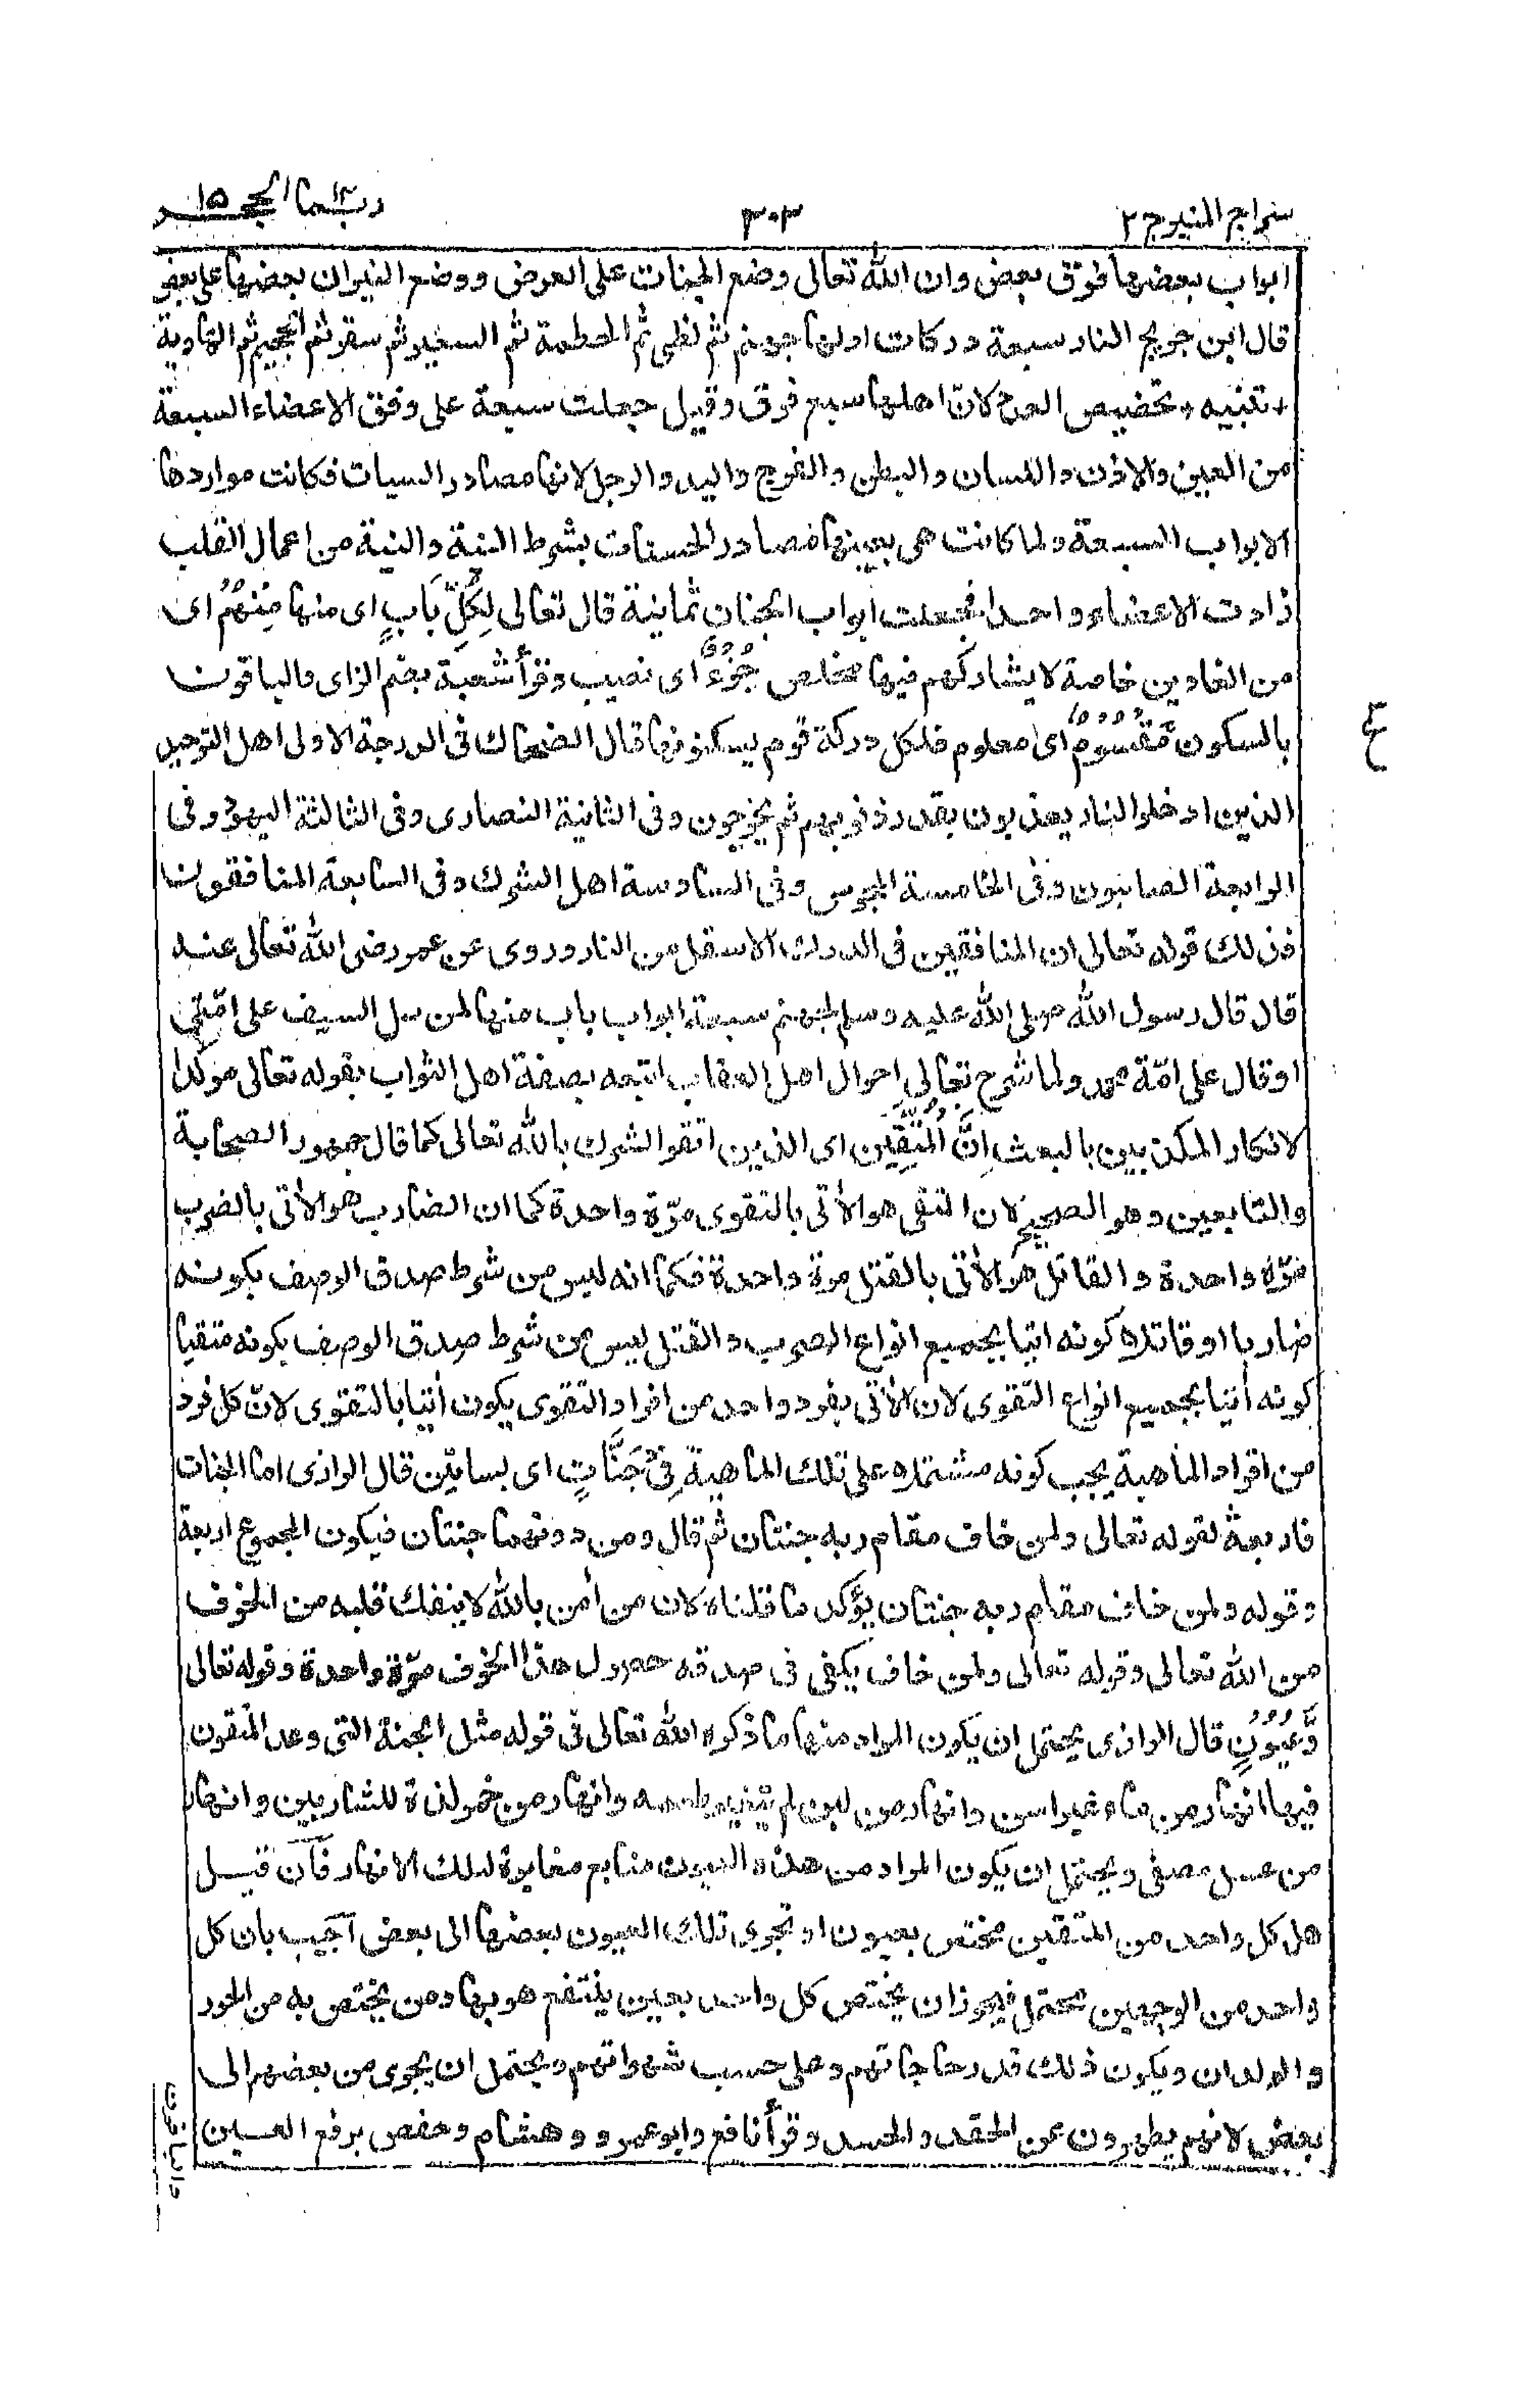 سراج المنير ج ٢
٣٠٣
ربما ١٤ الحجر ١٥
ابواب بعضها فوق بعض وان الله تعالى وضع الجنات على العرض ووضع النيران بعضها على بعض
قال ابن جريج النار سبعة دركات اولها جهنم ثم لظى ثم الحطمة ثم السعير ثم سقر ثم الجحيم ثم الهاوية
٭ تنبيه ٭ تخصيص العدد لان اهلها سبع فرق وقيل جعلت سبعة على وفق الاعضاء السبعة
من العين والاذن واللسان والبطن والفرج واليد والرجل لانها مصادر السيات فكانت مواردها
الابواب السبعة ولما كانت هى بعينها مصادر الحسنات بشرط النية والنية من اعمال القلب
زادت الاعضاء واحدا فجعلت ابواب الجنان ثمانية قال تعالى لِكُلِّ بَابٍ اى منها مِنْهُمْ اى
من الغاوين خاصة لا يشاركهم فيها مخلص جُزْءٌ اى نصيب وقرأ شعبة بضم الزاى والباقون
بالسكون مَّقْسُومٌ اى معلوم فلكل دركة قوم يسكنونها قال الضحاك فى الدرجة الاولى اهل التوحيد
الذين ادخلوا النار يعذبون بقدر ذنوبهم ثم يخرجون وفى الثانية النصارى وفى الثالثة اليهود وفى
الرابعة الصابئون وفى الخامسة المجوس وفى السادسة اهل الشرك وفى السابعة المنافقون
فذلك قوله تعالى ان المنافقين فى الدرك الاسفل من النار وروى عن عمر رضى الله تعالى عنه
قال قال رسول الله صلى الله عليه وسلم لجهنم سبعة ابواب باب منها لمن سل السيف على امّتى
او قال على امّة محمد ولما شرح تعالى احوال اهل العقاب اتبعه بصفة اهل الثواب بقوله تعالى مؤكدا
لانكار المكذبين بالبعث اِنَّ الْمُتَّقِيْنَ اى الذين اتقوا الشرك بالله تعالى كما قال جمهور الصحابة
والتابعين وهو الصحيح لان المتقى هو الأتى بالتقوى مرّة واحدة كما ان الضارب هو الأتى بالضرب
مرّة واحدة والقاتل هو الأتى بالقتل مرة واحدة فكما انه ليس من شرط صدق الوصف بكونه
ضاربا او قاتلا كونه اتيا بجميع انواع الضرب والقتل ليس من شرط صدق الوصف بكونه متقيا
كونه أتيا بجميع انواع التقوى لان الأتى بفرد واحد من افراد التقوى يكون أتيا بالتقوى لانّ كل فرد
من افراد الماهية يجب كونه مشتملا على تلك الماهية فِىْ جَنّٰتٍ اى بساتين قال الرازى اما الجنات
فاربعة لقوله تعالى ولمن خاف مقام ربه جنتان ثم قال ومن دونهما جنتان فيكون المجموع اربعة
وقوله ولمن خاف مقام ربه جنتان يؤكد ما قلناه لان من أمن بالله لا ينفك قلبه من الخوف
من الله تعالى وقوله تعالى ولمن خاف يكفى فى صدقه حصول هذا الخوف مرّة واحدة وقوله تعالى
وَّعُيُوْنٍ قال الرازى يحتمل ان يكون المراد منها ما ذكره الله تعالى فى قوله مثل الجنة التى وعد المتقون
فيها انهار من ماء غير اسن وانهار من لبن لم يتغير طعمه وانهار من خمر لذة للشاربين وانهار
من عسل مصفى ويحتمل ان يكون المراد من هذه العيون منابع مغايرة لتلك الانهار فأن قيل
هل كل واحد من المتقين مختص بعيون او تجرى تلك العيون بعضها الى بعض أجيب بان كل
واحد من الوجهين محتمل فيجوز ان يختص كل واحد بعين ينتفع هو بها ومن يختص به من الحور
والولدان ويكون ذلك قدر حاجاتهم وعلى حسب شهواتهم ويحتمل ان يجرى من بعضهم الى
بعض لانهم يطهرون عن الحقد والحسد وقرأ نافع وابو عمرو وهشام وحفص برفع العين
والباقون
ع